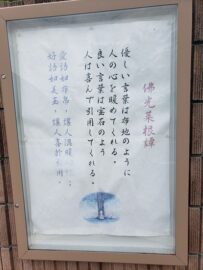 佛光菜根譚
優しい言葉は布地のように
人の心を暖めてくれる。
良い言葉は宝石のよう
人は喜んで引用してくれる。
愛語如布帛，讓人溫暖
好語如美玉，讓人喜於引用。